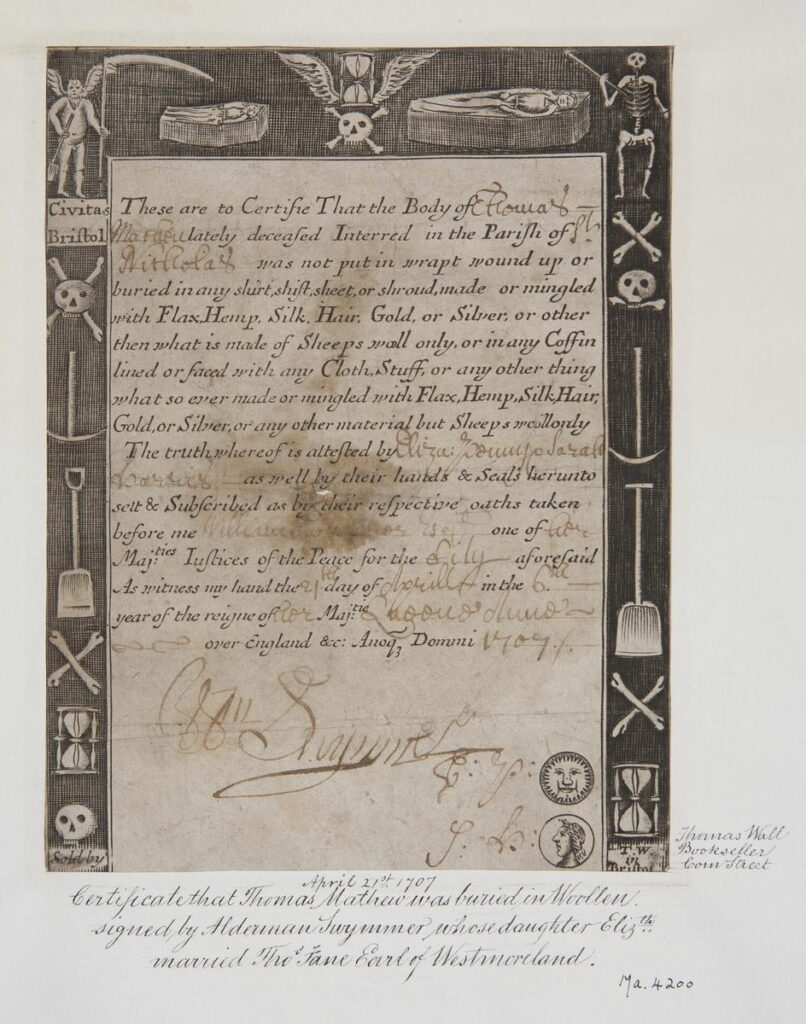 Civitas
Bristol
These are to Certifie That the Body of Thomas
Mathew lately deceased Interred in the Parish of St
Nicholas was not put in wrapt wound up or
buried in any shirt, shift, sheet, or shroud, made or mingled
with Flax, Hemp, Silk, Hair, Gold, or Silver, or other
then what is made of Sheeps wooll only, or in any Coffin
lined or faced with any Cloth, Stuff, or any other thing
what so ever made or mingled with Flax, Hemp, Silk, Hair,
Gold, or Silver, or any other material but Sheeps wooll only
The truth whereof is attested by Eliza: Sarah
as well by their hands & Seals herunto
sett & Subscribed as by their respective oaths taken
before me William Esqr one of her
Maj:ties Iustices of the Peace for the City aforesaid
As witness my hand the 21th day of Aprill in the 6th
year of the reigne of her Maj:tie Queene Anne
over England &c: Anoq3 Domini 1707
Wm Swymmer
E: P:
S: H:
Sold by
T.W
in
Bristol
Thomas Wall
Bookseller
Corn Street
April 21st 1707
Certificate that Thomas Mathew was buried in Woollen.
signed by Alderman Swymmer, whose daughter Elizth
married Thos Fane Earl of Westmoreland.
Ma. 4200